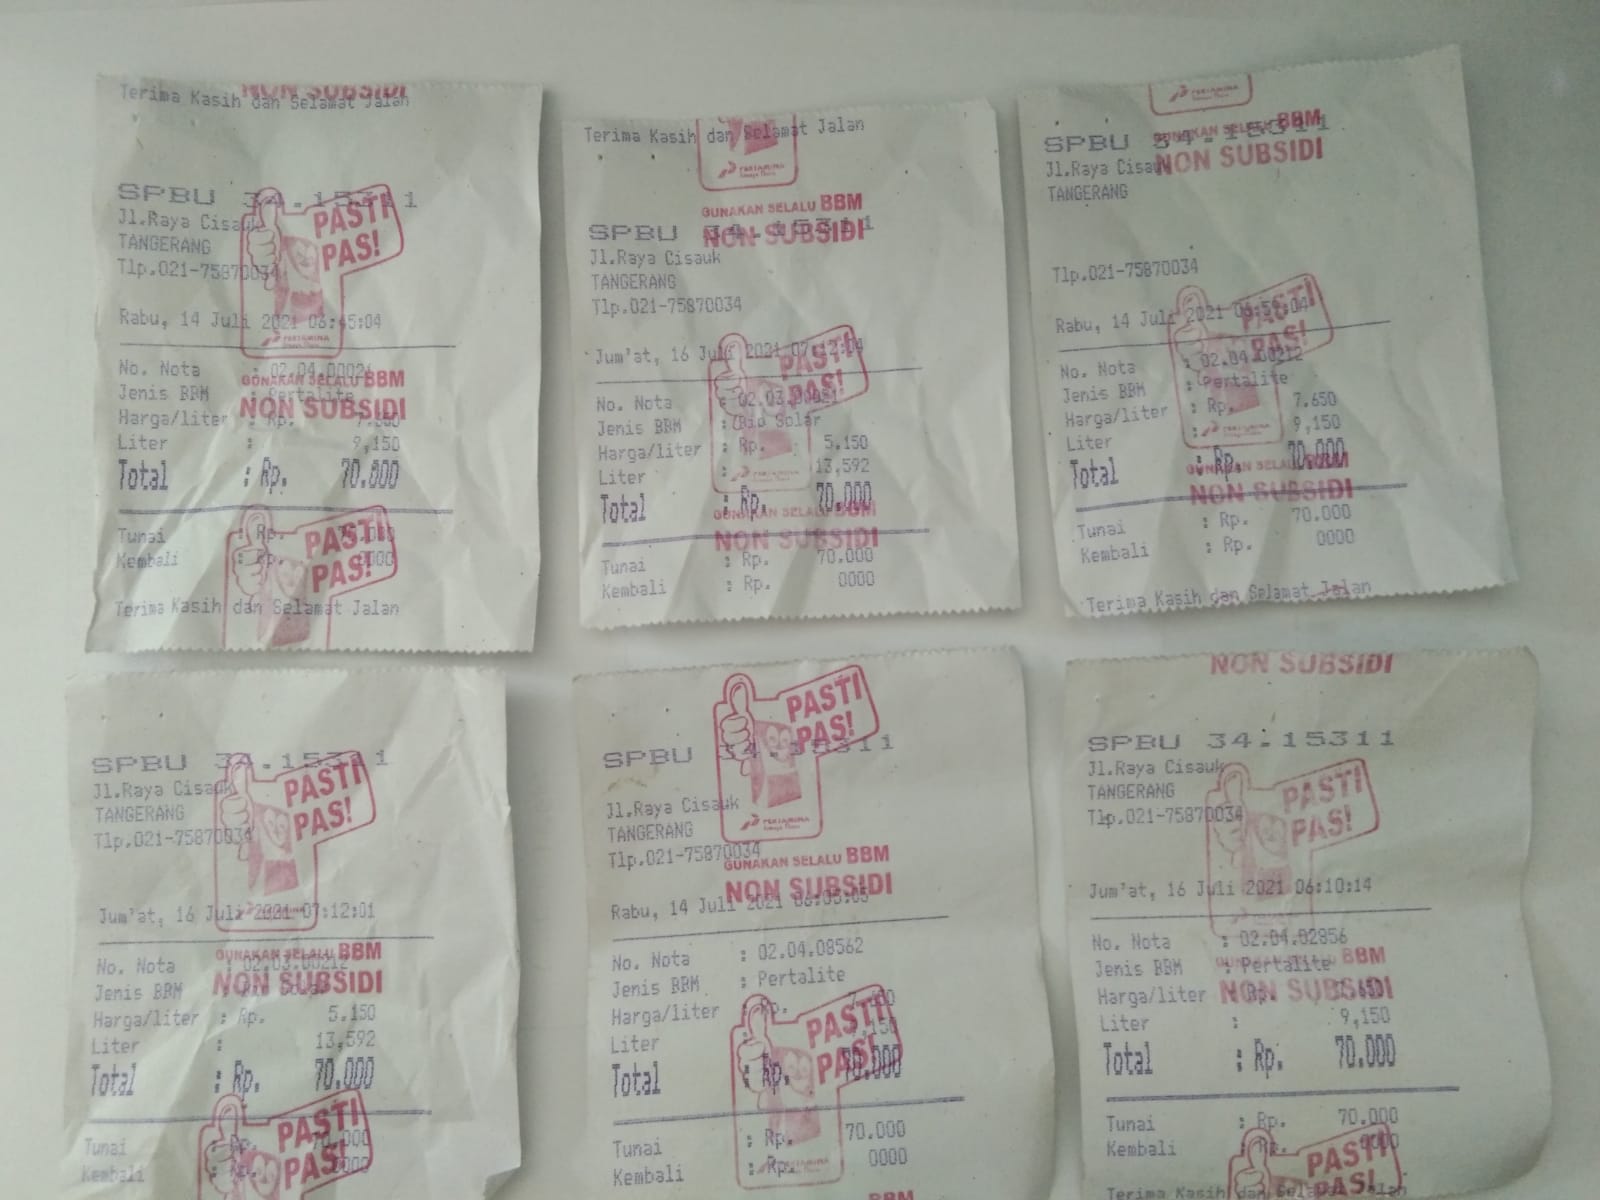 NON SUBSIDI
Terima Kasih dan Selamat Jalan
SPBU 34.15311
Jl.Raya Cisauk
TANGERANG
Tlp.021-75870034
PASTI
PAS!
PERTAMINA
Rabu, 14 Juli 2021 06:45:04
No. Nota :
GUNAKAN SELALU BBM
Jenis BBM : Pertalite
NON SUBSIDI
Harga/liter : Rp.
Liter : 9,150
Total : Rp. 70.000
Tunai : Rp.
Kembali : Rp. 0000
PASTI
PAS!
Terima Kasih dan Selamat Jalan
Terima Kasih dan Selamat Jalan
PERTAMINA
GUNAKAN SELALU BBM
SPBU 34.15311
NON SUBSIDI
Jl.Raya Cisauk
TANGERANG
Tlp.021-75870034
Jum'at, 16 Juli 2021
PASTI
PAS!
No. Nota :
Jenis BBM : Bio Solar
Harga/liter : Rp. 5.150
Liter : 13,592
Total : Rp. 70.000
GUNAKAN SELALU BBM
NON SUBSIDI
Tunai : Rp. 70.000
Kembali : Rp. 0000
PERTAMINA
GUNAKAN SELALU BBM
SPBU 34.15311
NON SUBSIDI
Jl.Raya Cisauk
TANGERANG
Tlp.021-75870034
Rabu, 14 Juli 2021
PASTI
PAS!
No. Nota : 02.04.00212
Jenis BBM : Pertalite
Harga/liter : Rp. 7.650
Liter : 9,150
Total : Rp. 70.000
GUNAKAN SELALU BBM
NON SUBSIDI
Tunai : Rp. 70.000
Kembali : Rp. 0000
Terima Kasih dan Selamat Jalan
SPBU 34.15311
Jl.Raya Cisauk
TANGERANG
Tlp.021-75870034
PASTI
PAS!
Jum'at, 16 Juli 2021 07:12:01
GUNAKAN SELALU BBM
No. Nota : 02.03.00212
NON SUBSIDI
Jenis BBM :
Harga/liter : Rp. 5.150
Liter : 13,592
Total : Rp. 70.000
PASTI
PAS!
Tunai : Rp. 70.000
Kembali : Rp. 0000
PASTI
PAS!
SPBU 34.15311
Jl.Raya Cisauk
TANGERANG
PERTAMINA
Tlp.021-75870034
GUNAKAN SELALU BBM
NON SUBSIDI
Rabu, 14 Juli 2021 06:05:05
No. Nota : 02.04.08562
Jenis BBM : Pertalite
Harga/liter : Rp.
Liter
PASTI
PAS!
Total : Rp. 70.000
Tunai : Rp. 70.000
Kembali : Rp. 0000
BBM
NON SUBSIDI
SPBU 34.15311
Jl.Raya Cisauk
TANGERANG
Tlp.021-75870034
PASTI
PAS!
Jum'at, 16 Juli 2021 06:10:14
No. Nota : 02.04.02856
GUNAKAN SELALU BBM
Jenis BBM : Pertalite
NON SUBSIDI
Harga/liter : Rp. 7.650
Liter : 9,150
Total : Rp. 70.000
Tunai : Rp. 70.000
Kembali : Rp. 0000
PASTI
PAS!
Terima Kasih dan Selamat Jalan